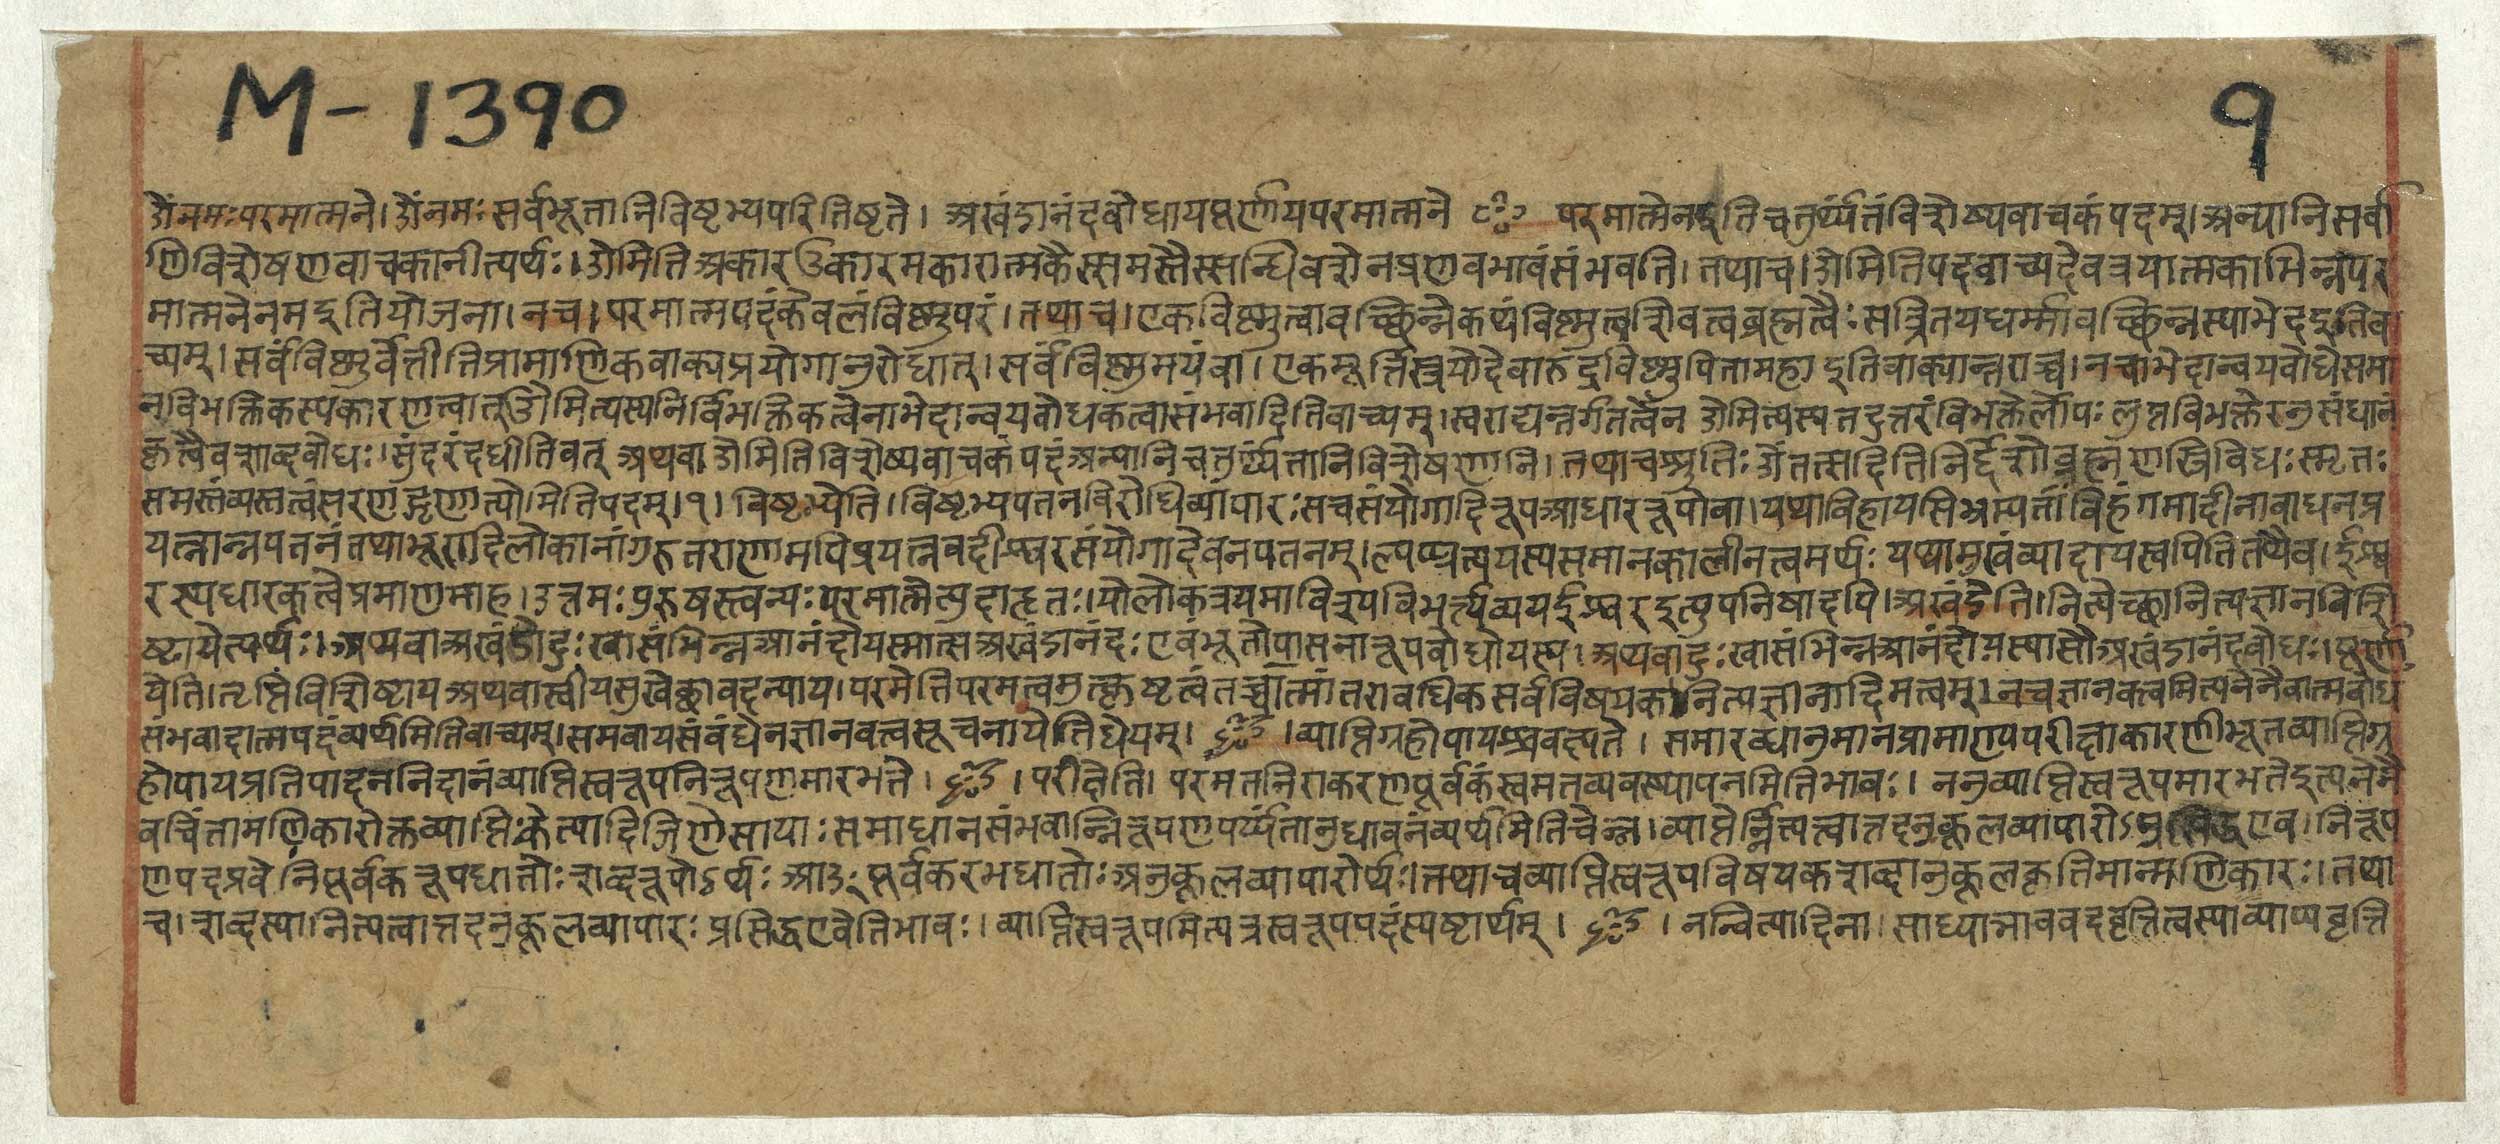 M-1390
१
ॐनमःपरमात्मने।ॐनमःसर्वभूतानिविष्टभ्यपरितिष्ठते। अखंडानंदबोधायपूर्णायपरमात्मने परमात्मेनइतिचतुर्थ्यंतंविशेष्यवाचकंपदम्।अन्यानिसर्वा
णिविशेषणवाचकानीत्यर्थः।ओमितिअकारउकारमकारात्मकैस्समस्तैस्सन्धिवशेनप्रणवभावंसंभवति।तथाच।ओमितिपदवाच्यदेवत्रयात्मकाभिन्नपर
मात्मनेनमइतियोजना।नच।परमात्मपदंकेवलंविष्णुपरं।तथाच।एकविष्णुत्वावच्छिन्नेकथंविष्णुत्वशिवत्वब्रह्मत्वैःसत्रितयधर्म्मावच्छिन्नस्याभेदइतिवा
च्यम्।सर्वंविष्णुर्वेत्तीतिप्रामाणिकवाक्यप्रयोगानुरोधात्।सर्वंविष्णुमयंवा।एकमूर्त्तिस्त्रयोदेवारुद्रविष्णुपितामहाइतिवाक्यान्तराच्च।नचाभेदान्वयबोधेसमा
नविभक्तिकस्यकारणत्वात्ओमित्यस्यनिर्विभक्तिकत्वेनाभेदान्वयबोधकत्वासंभवादितिवाच्यम्।स्वराद्यन्तर्गतत्वेन ओमित्यस्यतदुत्तरंविभक्तेर्लोपःलुप्तविभक्तेरनुसंधानं
कृत्वैवशाब्दबोधः।सुंदरंदधीतिवत्अथवाओमितिविशेष्यवाचकंपदंअन्यानिचतुर्थ्यंतानिविशेषणानि।तथाचश्रुतिःॐतत्सदितिनिर्द्देशोब्रह्मणस्त्रिविधःस्मृतः
समस्तंव्यस्तत्वंसरणद्गृणात्योमितिपदम्।१।विष्टभ्येति।विष्टभ्यपतनविरोधिव्यापारःसचसंयोगादिरूपआधाररूपोवा।यथाविहायसिभ्रम्यतांविहंगमादीनाबाधनप्र
यत्नान्नपतनंतथाभूरादिलोकानांगुरुतराणामपिप्रयत्नवदीश्वरसंयोगादेवनपतनम्।ल्यप्प्रत्ययस्यसमानकालीनत्वमर्थःयथामुखंव्यादायस्वपितितथैव।ईश्व
रस्यधारकत्वेप्रमाणमाह।उत्तमःपुरुषस्त्वन्यःपरमात्मेत्युदाहृतः।योलोकत्रयमाविश्यविभर्त्त्यव्ययईश्वरइत्युपनिषादपि।अखंडेति।नित्येच्छानित्यज्ञानविशि
ष्टायेत्यर्थः।अथवाअखंडोदुःखासंभिन्नआनंदोयस्मात्सअखंडानंदःएवंभूतोपासनारूपबोधोयस्य।अथवादुःखासंभिन्नआनंदोयस्यासौअखंडानंदबोधः।पूर्णा
येति।तृप्तिविशिष्टायअथवास्वीयसुखेच्छावदन्याय।परमेतिपरमत्वमुत्कृष्टत्वंतच्चात्मांतरावधिकसर्वविषयकनित्यज्ञानादिमत्वम्।नचज्ञानकत्वमित्यनेनैवात्मबोध
संभवादात्मपदंव्यर्थमितिवाच्यम्।समवायसंबंधेनज्ञानवत्वसूचनायेतिध्येयम्। ।व्याप्तिग्रहोपायश्चवक्ष्यते। समारब्धानुमानप्रामाण्यपरीक्षाकारणीभूतव्याप्तिग्र
होपायप्रतिपादननिदानंव्याप्तिस्वरूपनिरूपणमारभते। ।परीक्षेति। परमतनिराकरणपूर्वकंस्वमतव्यवस्थापनमितिभावः। ननुव्याप्तिस्वरूपमारभतेइत्यनेनै
वचिंतामणिकारोक्तव्याप्तिःकेत्यादिजिज्ञेसायाःसमाधानसंभवान्निरूपणपर्य्यंतानुधावनंव्यर्थमितिचेन्न।व्याप्तेर्न्नित्यत्वात्तदनुकूलव्यापारोऽप्रसिद्धएव।निरूप
णपदप्रवेनिपूर्वकरूपधातोःशब्दरूपोऽर्थः।आङ्पूर्वकरभधातोःअनुकूलव्यापारोर्थः।तथाचव्याप्तिस्वरूपविषयकशब्दानुकूलकृतिमान्मणिकारः।तथा
च।शब्दस्यानित्यत्वात्तदनुकूलव्यापारःप्रसिद्धएवेतिभावः।व्याप्तिस्वरूपमित्यत्रस्वरूपपदंस्पष्टार्थम्। ।नन्वित्यादिना।साध्याभाववदवृत्तित्वस्याव्याप्यवृत्ति